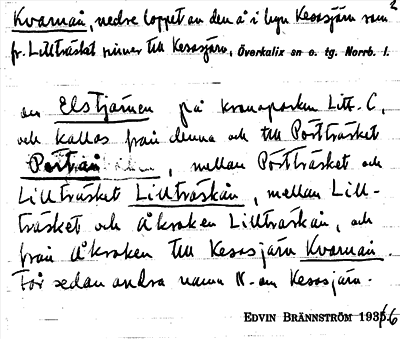 2
Kvarnån, nedre loppet av den å i byn Kesasjärv som
fr. Lillträsket rinner till Kesasjärv, Överkalix sn o. tg. Norrb. l.
Elstjärnen på kronoparken Litt. C,
och kallas från denna och till Pörtträsket
Pörtån, mellan Pörtträsket och
Lillträsket Lillträskån, mellan Lill-
träsket och åkroken Lillträskån, och
från åkroken till Kesasjärv Kvarnån.
För sedan andra namn N. om Kesasjärv.
EDVIN BRÄNNSTRÖM 1935/6